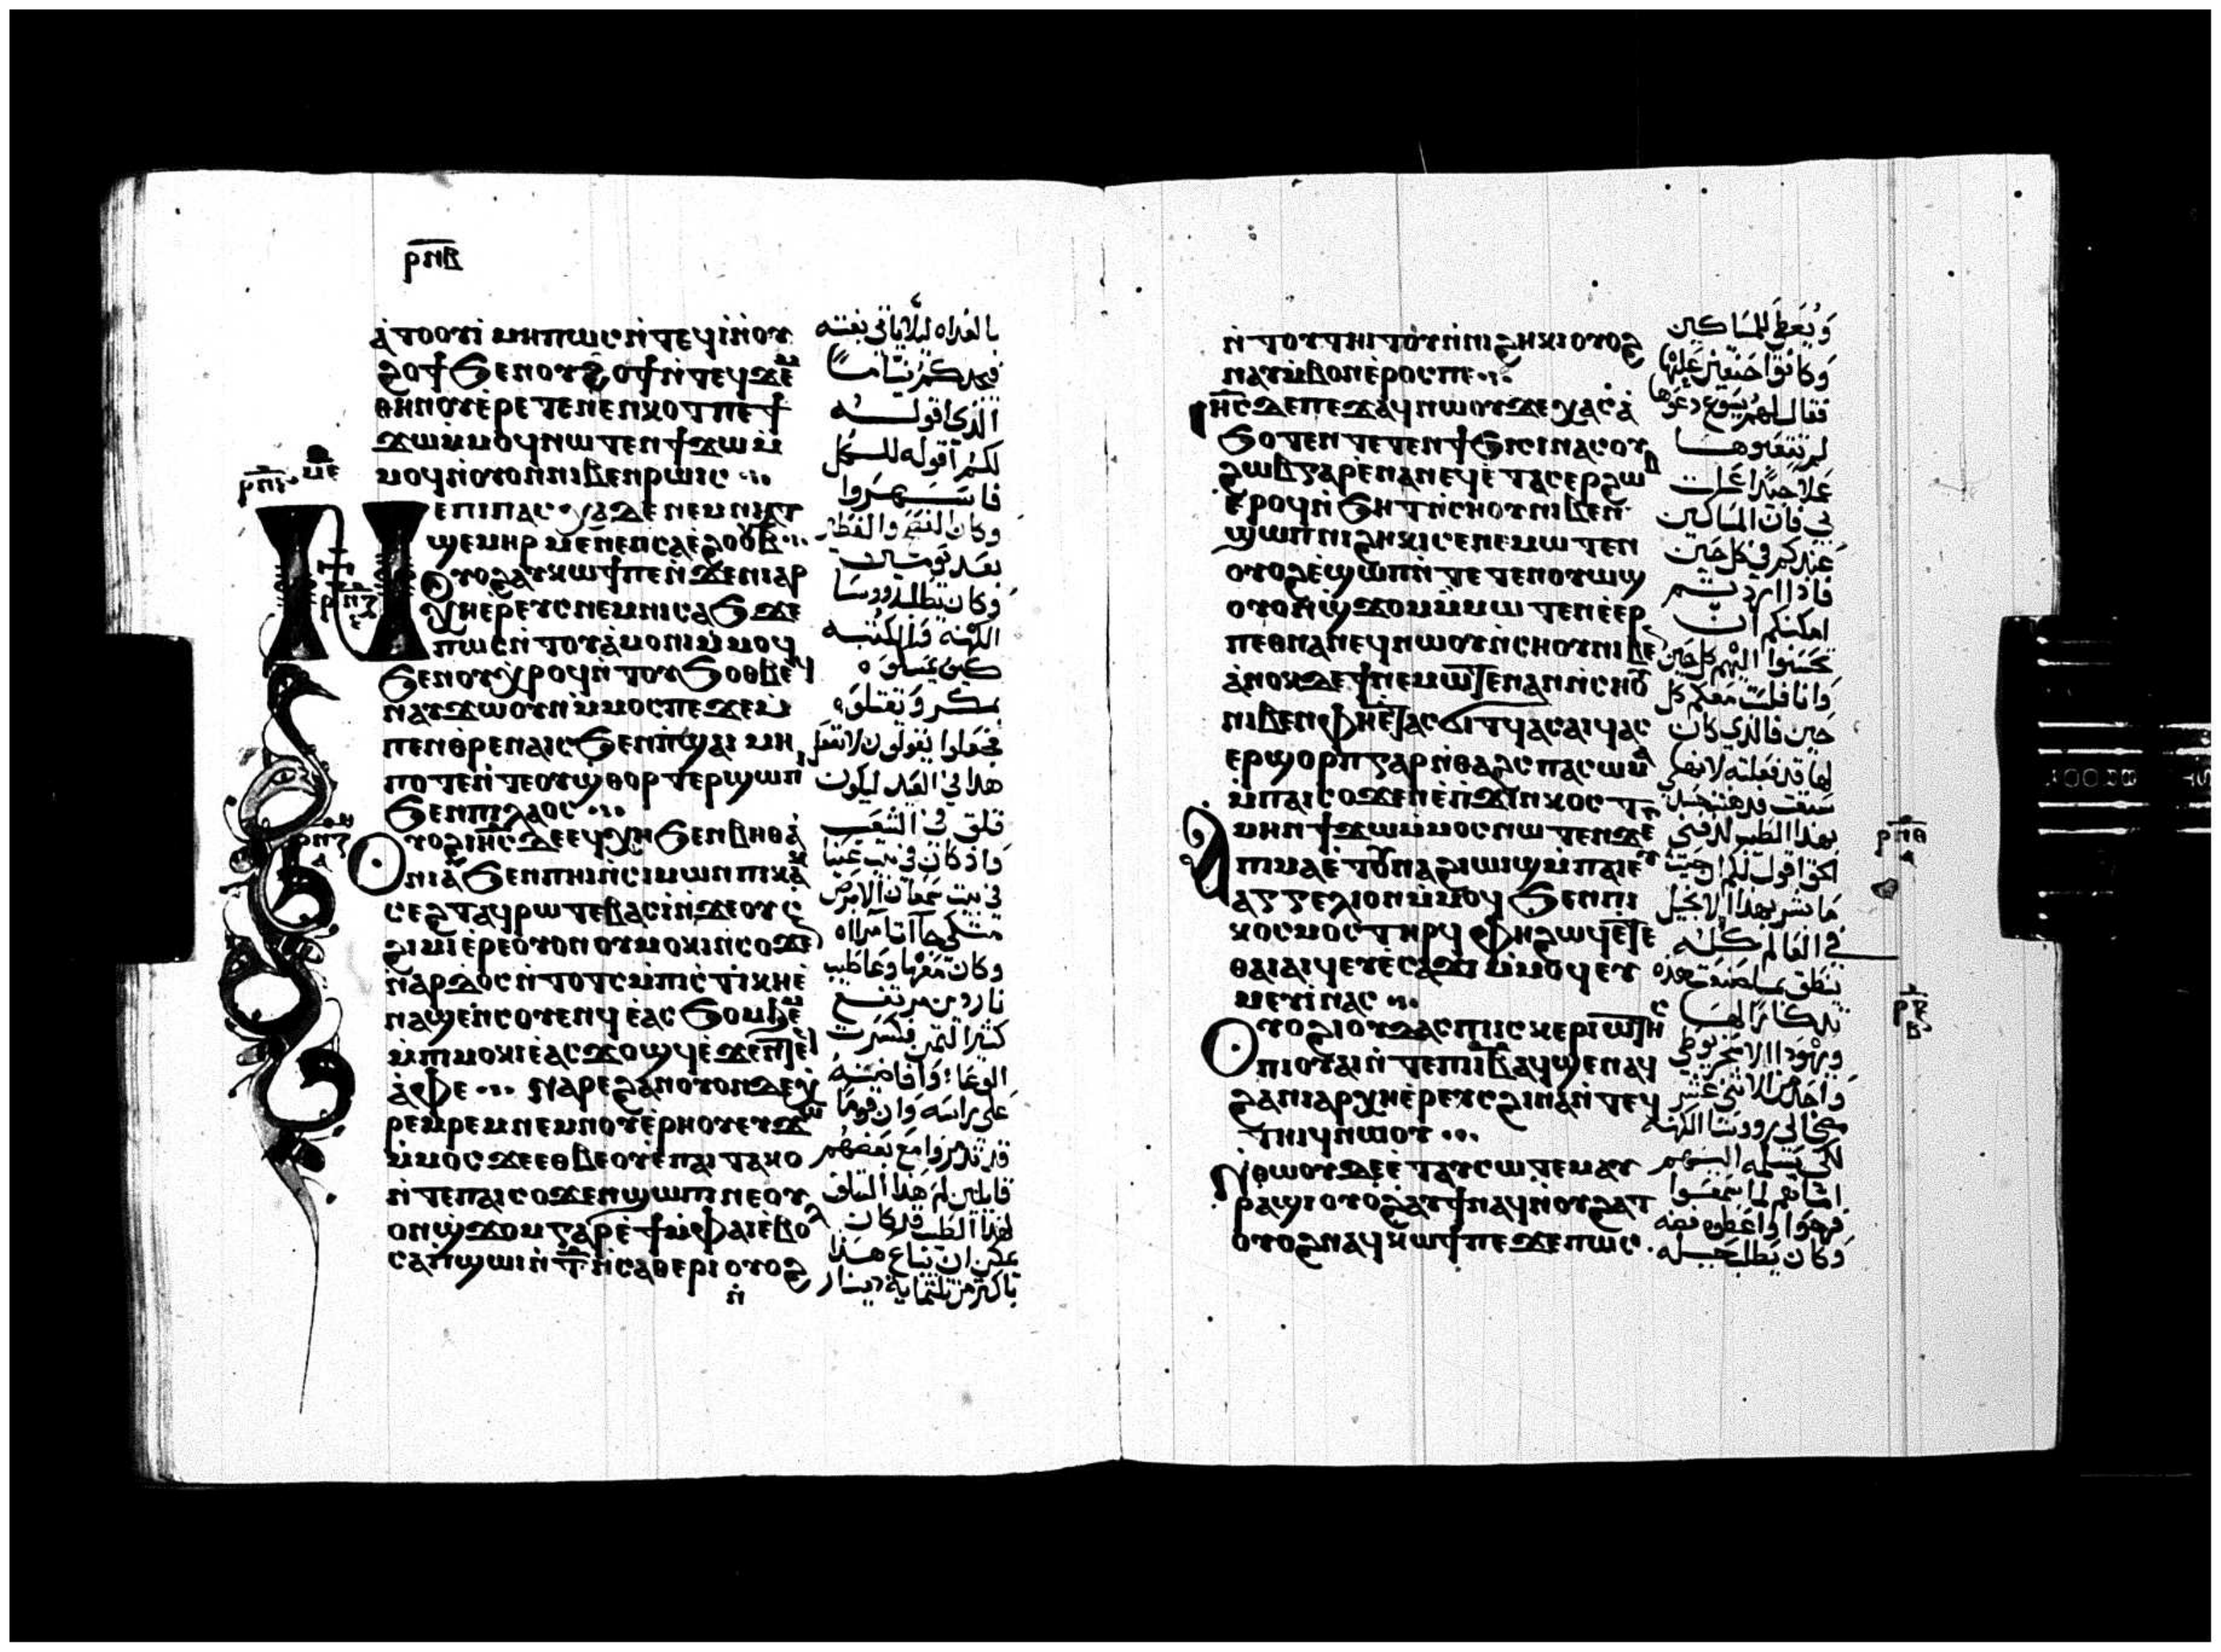 ⲣⲛⲃ
ⲁⲧⲟⲟⲩⲓ ⲙⲏⲡⲱⲥ ⲛⲧⲉϥⲓ ⲛⲟⲩ
ϩⲟϯ ϧⲉⲛⲟⲩϩⲟϯ ⲛⲧⲉϥϫⲉⲙ
ⲑⲏⲛⲟⲩ ⲉⲣⲉⲧⲉⲛⲉⲛⲕⲟⲧ ⲡⲉϯ
ϫⲱ ⲙⲙⲟϥ ⲛⲱⲧⲉⲛ ϯϫⲱ ⲙ
ⲙⲟϥ ⲛⲟⲩⲟⲛ ⲛⲓⲃⲉⲛ ⲣⲱⲓⲥ
ⲛⲉ ⲡⲓⲡⲁⲥⲭⲁ ⲇⲉ ⲛⲉⲙ ⲛⲓⲁⲧ
ϣⲉⲙⲏⲣ ⲙⲉⲛⲉⲛⲥⲁ ⲉϩⲟⲟⲩ ⲃ
ⲟⲩⲟϩ ⲁⲩⲕⲱϯ ⲡⲉ ⲛϫⲉ ⲛⲓⲁⲣ
ⲭⲏⲉⲣⲉⲩⲥ ⲛⲉⲙ ⲛⲓⲥⲁϧ ϫⲉ
ⲡⲱⲥ ⲛⲧⲟⲩⲁⲙⲟⲛⲓ ⲙⲙⲟϥ
ϧⲉⲛⲟⲩⲭⲣⲟϥ ⲛⲧⲟⲩϧⲟⲑⲃⲉϥ
ⲛⲁⲩϫⲱ ⲟⲩⲛ ⲙⲙⲟⲥ ⲡⲉ ϫⲉ ⲙ
ⲡⲉⲛⲑⲣⲉⲛⲁⲓⲥ ϧⲉⲛ ⲡϣⲁⲓ ⲙⲏ
ⲡⲟⲧⲉ ⲛⲧⲉⲟⲩϣⲑⲟⲣⲧⲉⲣ ϣⲱⲡⲓ
ϧⲉⲛ ⲡⲓⲗⲁⲟⲥ
ⲟⲩⲟϩ ⲓⲏⲥ ⲇⲉ ⲉϥⲭⲏ ϧⲉⲛ ⲃⲏⲑⲁ
ⲛⲓⲁ ϧⲉⲛ ⲡⲏⲓ ⲛⲥⲓⲙⲱⲛ ⲡⲓⲕⲁⲕ
ⲥⲉϩⲧ ⲁϥⲣⲱⲧⲉⲃ ⲁⲥⲓ ⲛϫⲉ ⲟⲩⲥ
ϩⲓⲙⲓ ⲉⲣⲉ ⲟⲩⲟⲛ ⲟⲩⲙⲟⲕⲓ ⲛⲥⲟϫⲉⲛ
ⲛⲁⲣⲇⲟⲥ ⲛⲧⲟⲧⲥ ⲙⲡⲓⲥⲧⲓⲕⲏ ⲉ
ⲛⲁϣⲉⲛⲥⲟⲩⲉⲛϥ ⲉⲁⲥϧⲟⲙϧⲉⲙ
ⲙⲡⲓⲙⲟⲕⲓ ⲉⲁⲥϫⲟϣϥ ⲉϫⲉⲛ ⲧⲉϥ
ⲁⲫⲉ ⲛⲁⲣⲉ ϩⲁⲛⲟⲩⲟⲛ ⲇⲉ ⲭ
ⲣⲉⲙⲣⲉⲙ ⲛⲉⲙ ⲛⲟⲩⲉⲣⲏⲟⲩ ⲉⲩϫⲱ
ⲙⲙⲟⲥ ϫⲉ ⲉⲑⲃⲉ ⲟⲩ ⲉⲡⲁⲓⲧⲁⲕⲟ
ⲛⲧⲉ ⲡⲁⲓⲥⲟϫⲉⲛ ϣⲱⲡⲓ ⲛⲉ ⲟⲩ
ⲟⲛ ϣϫⲟⲙ ⲅⲁⲣ ⲉϯ ⲙⲫⲁⲓ ⲉⲃⲟⲗ
ⲥⲁⲡϣⲱⲓ ⲛⲧ ⲛⲥⲁⲑⲉⲣⲓ ⲟⲩⲟϩ
ⲛ
بالغداه ليلا ياتي بغته
فيجدكم نياما
الذي اقوله
لكم اقوله للكل
فاسهروا
وكان الفصح والفطير
بعد يومين
وكان يطلب روسا
الكهنه والكتبه
كيف يمسكوه
بمكر ويقتلوه
فجعلوا يقولون لا نفعل
هذا في العيد ليكون
قلق في الشعب
واذ كان في بيت عنيا
في بيت سمعان الابرص
متكي جاات امراه
وكان معها وعا طيب
ناردين مرتفع
كثير الثمن فكسرت
الوعا وافاضته
على راسه وان قوما
قد تذمروا مع بعضهم
قايلين لم هذا التلاف
لهذا الطيب قد كان
يمكن ان يباع هذا
باكثر من ثلثمايه دينار
ⲛⲧⲟⲩⲧⲏⲓⲧⲟⲩ ⲛⲛⲓϩⲏⲕⲓ ⲟⲩⲟϩ
ⲛⲁⲩⲙⲃⲟⲛ ⲉⲣⲟⲥ ⲡⲉ
ⲓⲏⲥ ⲇⲉ ⲡⲉϫⲁϥ ⲛⲱⲟⲩ ϫⲉ ⲭⲁⲥ ⲁ
ϧⲟⲧⲉⲛ ⲧⲉⲧⲉⲛϯϧⲓⲥⲓ ⲛⲁⲥ ⲟⲩ
ϩⲱⲃ ⲅⲁⲣ ⲉⲛⲁⲛⲉϥ ⲉⲧⲁⲥⲉⲣϩⲱⲃ
ⲉⲣⲟϥ ⲛϧⲏⲧ ⲛⲥⲏⲟⲩ ⲛⲓⲃⲉⲛ
ϣⲱⲡ ⲛⲓϩⲏⲕⲓ ⲥⲉⲛⲉⲙⲱⲧⲉⲛ
ⲟⲩⲟϩ ⲉϣⲱⲡ ⲛⲧⲉⲧⲉⲛⲟⲩⲱϣ
ⲟⲩⲟⲛ ϣϫⲟⲙ ⲙⲙⲱⲧⲉⲛ ⲉⲉⲣ
ⲡⲉⲑⲛⲁⲛⲉϥ ⲛⲱⲟⲩ ⲛⲥⲏⲟⲩ ⲛⲓⲃⲉⲛ
ⲁⲛⲟⲕ ⲇⲉ ϯⲛⲉⲙⲱⲧⲉⲛ ⲁⲛ ⲛⲥⲏⲟⲩ
ⲛⲓⲃⲉⲛ ⲫⲏ ⲉⲧⲁⲥϭⲓⲧϥ ⲁⲥⲁⲓϥ ⲁⲥ
ⲉⲣϣⲟⲣⲡ ⲅⲁⲣ ⲛⲑⲁϩⲥ ⲡⲁⲥⲱⲙⲁ
ⲙⲡⲁⲓⲥⲟϫⲉⲛ ⲉⲡϫⲓⲛⲕⲟⲥⲧ
ⲁⲙⲏⲛ ϯϫⲱ ⲙⲙⲟⲥ ⲛⲱⲧⲉⲛ ϫⲉ
ⲡⲓⲙⲁ ⲉⲧⲟⲩⲛⲁϩⲓⲱⲓϣ ⲙⲡⲁⲓⲉⲩ
ⲁⲅⲅⲉⲗⲓⲟⲛ ⲙⲙⲟϥ ϧⲉⲛ ⲡⲓ
ⲕⲟⲥⲙⲟⲥ ⲧⲏⲣϥ ⲫⲏ ϩⲱϥ ⲉⲧⲉ
ⲑⲁⲓ ⲁⲓϥ ⲉⲩⲉⲥⲁϫⲓ ⲙⲙⲟϥ ⲉⲩ
ⲙⲉⲩⲓ ⲛⲁⲥ
ⲟⲩⲟϩ ⲓⲟⲩⲇⲁⲥ ⲡⲓⲓⲥⲕⲉⲣⲓⲱⲧⲏⲥ
ⲡⲓⲟⲩⲁⲓ ⲛⲧⲉ ⲡⲓⲓⲃ ⲁϥϣⲉ ⲛⲁϥ
ϩⲁ ⲛⲓⲁⲣⲭⲏⲉⲣⲉⲩⲥ ϩⲓⲛⲁ ⲛⲧⲉϥ
ⲧⲏⲓϥ ⲛⲱⲟⲩ
ⲛⲑⲱⲟⲩ ⲇⲉ ⲉⲧⲁⲩⲥⲱⲧⲉⲙ ⲁⲩ
ⲣⲁϣⲓ ⲟⲩⲟϩ ⲁⲩϯ ⲛⲁϥ ⲛⲟⲩϩⲁⲧ
ⲟⲩⲟϩ ⲛⲁϥⲕⲱϯ ⲡⲉ ϫⲉ ⲡⲱⲥ
ويعطى للمساكين
وكانوا حنقين عليها
فقال لهم يسوع دعوها
لم تتعبوها
عملا حسنا عملت
في فان المساكين
عندكم في كل حين
فاذا اردتم
امكنكم ان
تحسنوا اليهم كل حين
وانا فلست معكم كل
حين فالذي كان
لها قد فعلته لانها
سبقت فدهنت جسدي
بهذا الطيب لدفني
الحق اقول لكم ان حيث
ما بشر بهذا الانجيل
في العالم كله
ينطق بما صنعت هذه
تذكارا لها
ويهودا الاسخريوطي
واحد الاثني عشر
مضى الى روسا الكهنه
لكي يسلمه اليهم
اما هم لما سمعوا
فرحوا واعطوه فضه
وكان يطلب حيله